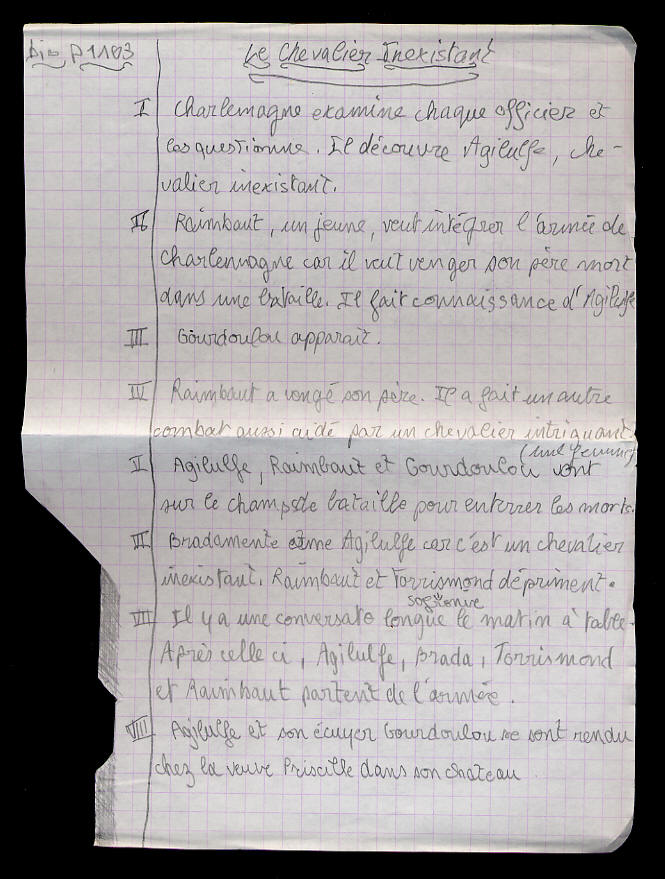 Dic p 1103
Le Chevalier Inexistant
I Charlemagne examine chaque officier et
les questionne. Il découvre Agilulfe, che-
valier inexistant.
II Raimbaut, un jeune, veut intégrer l'armée de
Charlemagne car il veut venger son père mort
dans une bataille. Il fait connaissance d'Agilulfe
III Gourdoulou apparait.
IV Raimbaut a vengé son père. Il a fait un autre
combat aussi aidé par un chevalier intriguant.
(une femme)
V Agilulfe, Raimbaut et Gourdoulou vont
sur le champs de bataille pour enterrer les morts.
VI Bradamente aime Agilulfe car c'est un chevalier
inexistant. Raimbaut et Torrismond dépriment.
sofronie
VII Il y a une conversato longue le matin à table.
Après celle ci, Agilulfe, Brada, Torrismond
et Raimbaut partent de l'armée.
VIII Agilulfe et son écuyer Gourdoulou se sont rendu
chez la veuve Priscille dans son chateau